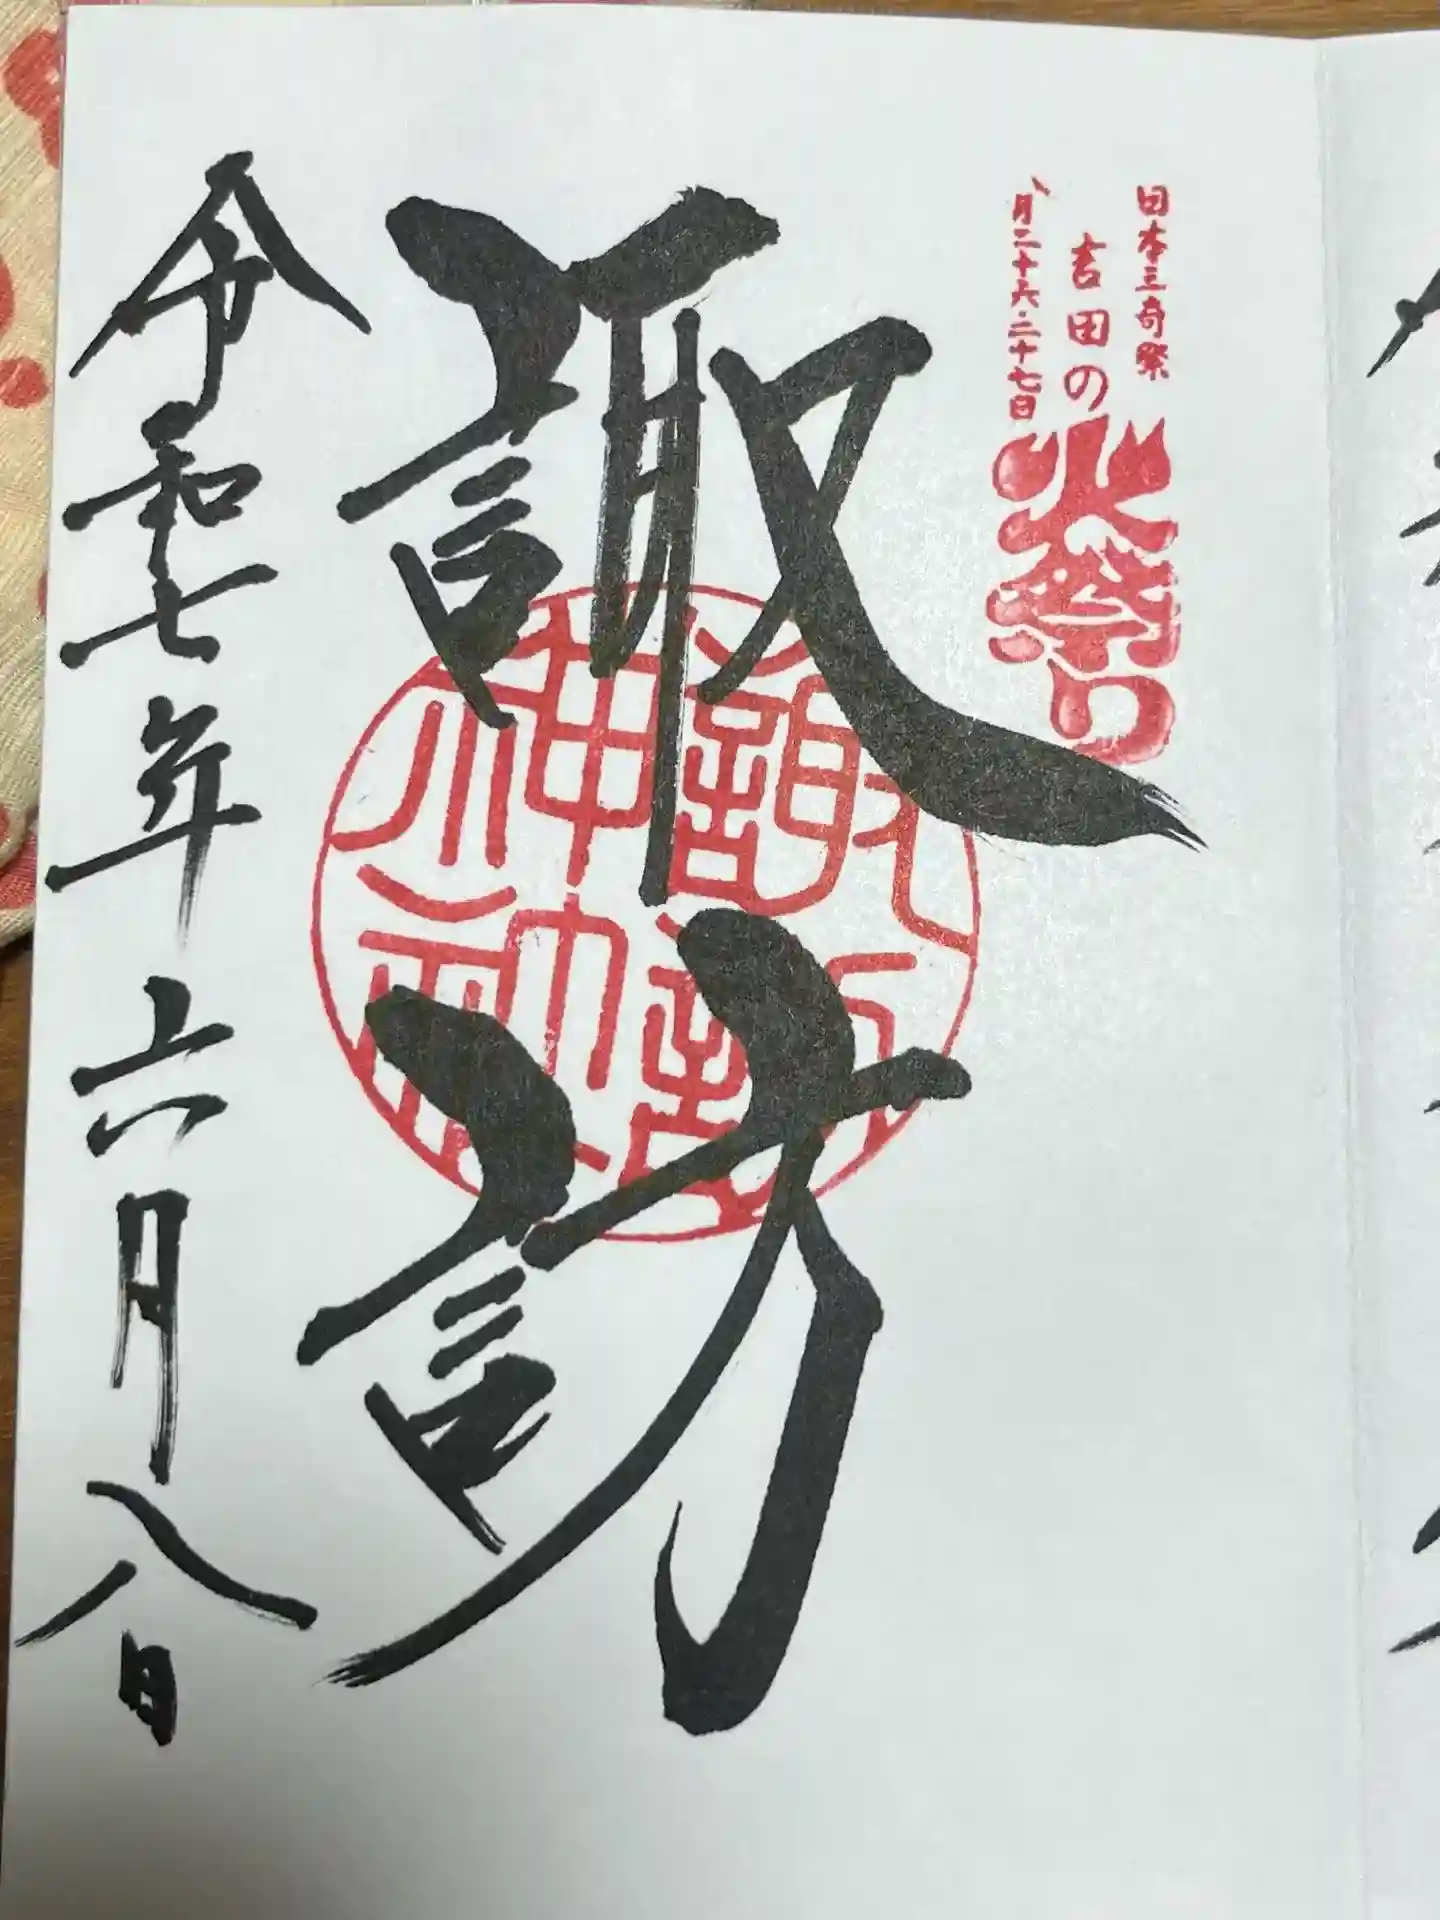 日本三奇祭
吉田の火祭り
八月二十六・二十七日
諏訪
令和七年六月八日